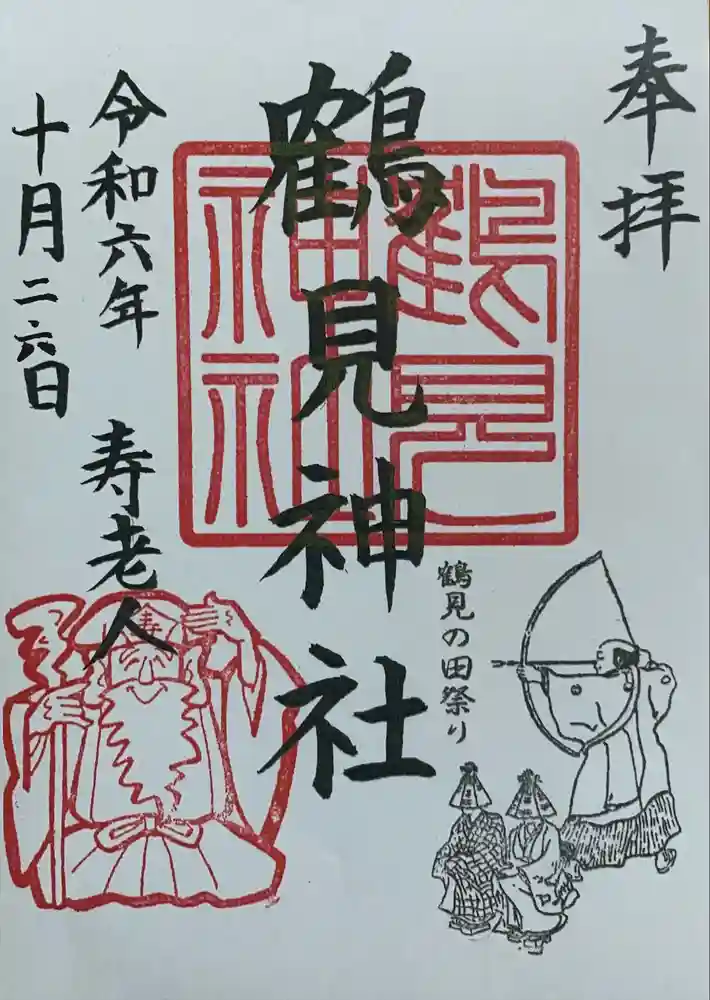 奉拝
鶴見神社
鶴見
神社
鶴見の田祭り
令和六年
十月二六日
寿老人
寿